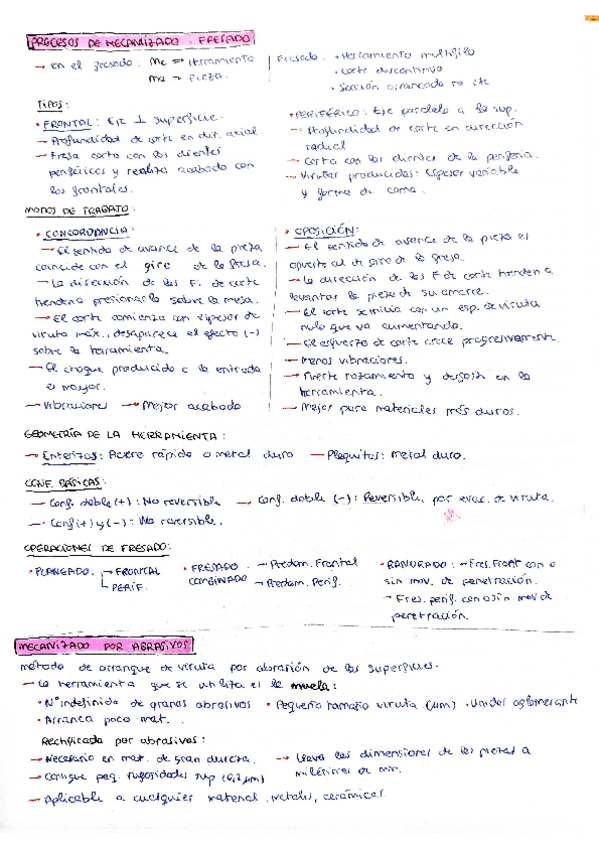 PROCESOS DE MECANIZADO: FRESADO
→ en el fresado. Mc => Herramienta
Ma → Pieza.
Fresado. • Herramienta multifilo
• Corte discontinuo
• Sección arrancada no cte
TIPOS:
• FRONTAL: Eje ⊥ superficie.
→ Profundidad de corte en dir. axial
→ Fresa corta con los dientes
periféricos y realiza acabado con
los frontales.
• PERIFÉRICO: Eje paralelo a la sup.
→ Profundidad de corte en dirección
radical
→ Corta con los dientes de la periferia.
→ Virutas producidas: Espesor variable
y forma de coma.
MODOS DE TRABAJO:
• CONCORDANCIA:
→ El sentido de avance de la pieza
coincide con el giro de la fresa.
→ La dirección de las F. de corte
tienden a presionarla sobre la mesa.
→ El corte comienza con espesor de
viruta máx., desaparece el efecto (-)
sobre la herramienta.
→ El choque producido a la entrada
es mayor.
→ Vibraciones → Mejor acabado
• OPOSICIÓN:
→ El sentido de avance de la pieza es
opuesto al de giro de la fresa.
→ La dirección de las F de corte tienden a
levantar la pieza de su amarre.
→ El corte se inicia con un esp. de viruta
nulo que va aumentando.
→ El esfuerzo de corte crece progresivamente.
→ Menos vibraciones.
→ Fuerte rozamiento y desgaste en la
herramienta.
→ Mejor para materiales más duros.
GEOMETRÍA DE LA HERRAMIENTA:
→ Enterizas: Acero rápido o metal duro → Plaquitas: metal duro.
CONF. BÁSICAS:
→ Conf. doble (+): No reversible → Conf. doble (-): Reversible, peor evac. de viruta.
→ Conf (+) y (-): No reversible.
OPERACIONES DE FRESADO:
• PLANEADO. → FRONTAL
↳ PERIF.
• FRESADO COMBINADO → Predom. Frontal
→ Predom. Perif.
• RANURADO: → Fres. Front con o
sin mov. de penetración.
→ Fres. perif. con o sin mov de
penetración.
MECANIZADO POR ABRASIVOS
método de arranque de viruta por abrasión de las superficies.
→ La herramienta que se utiliza es la muela:
• Nº indefinido de granos abrasivos • Pequeño tamaño viruta (μm) • Unidos aglomerante
• Arranca poco mat.
Rectificado por abrasivos:
→ Necesario en mat. de gran dureza.
→ Consigue peq. rugosidades sup (0,2 μm)
→ Lleva las dimensiones de las piezas a
milésimas de mm.
→ Aplicable a cualquier material. metales, cerámicos.